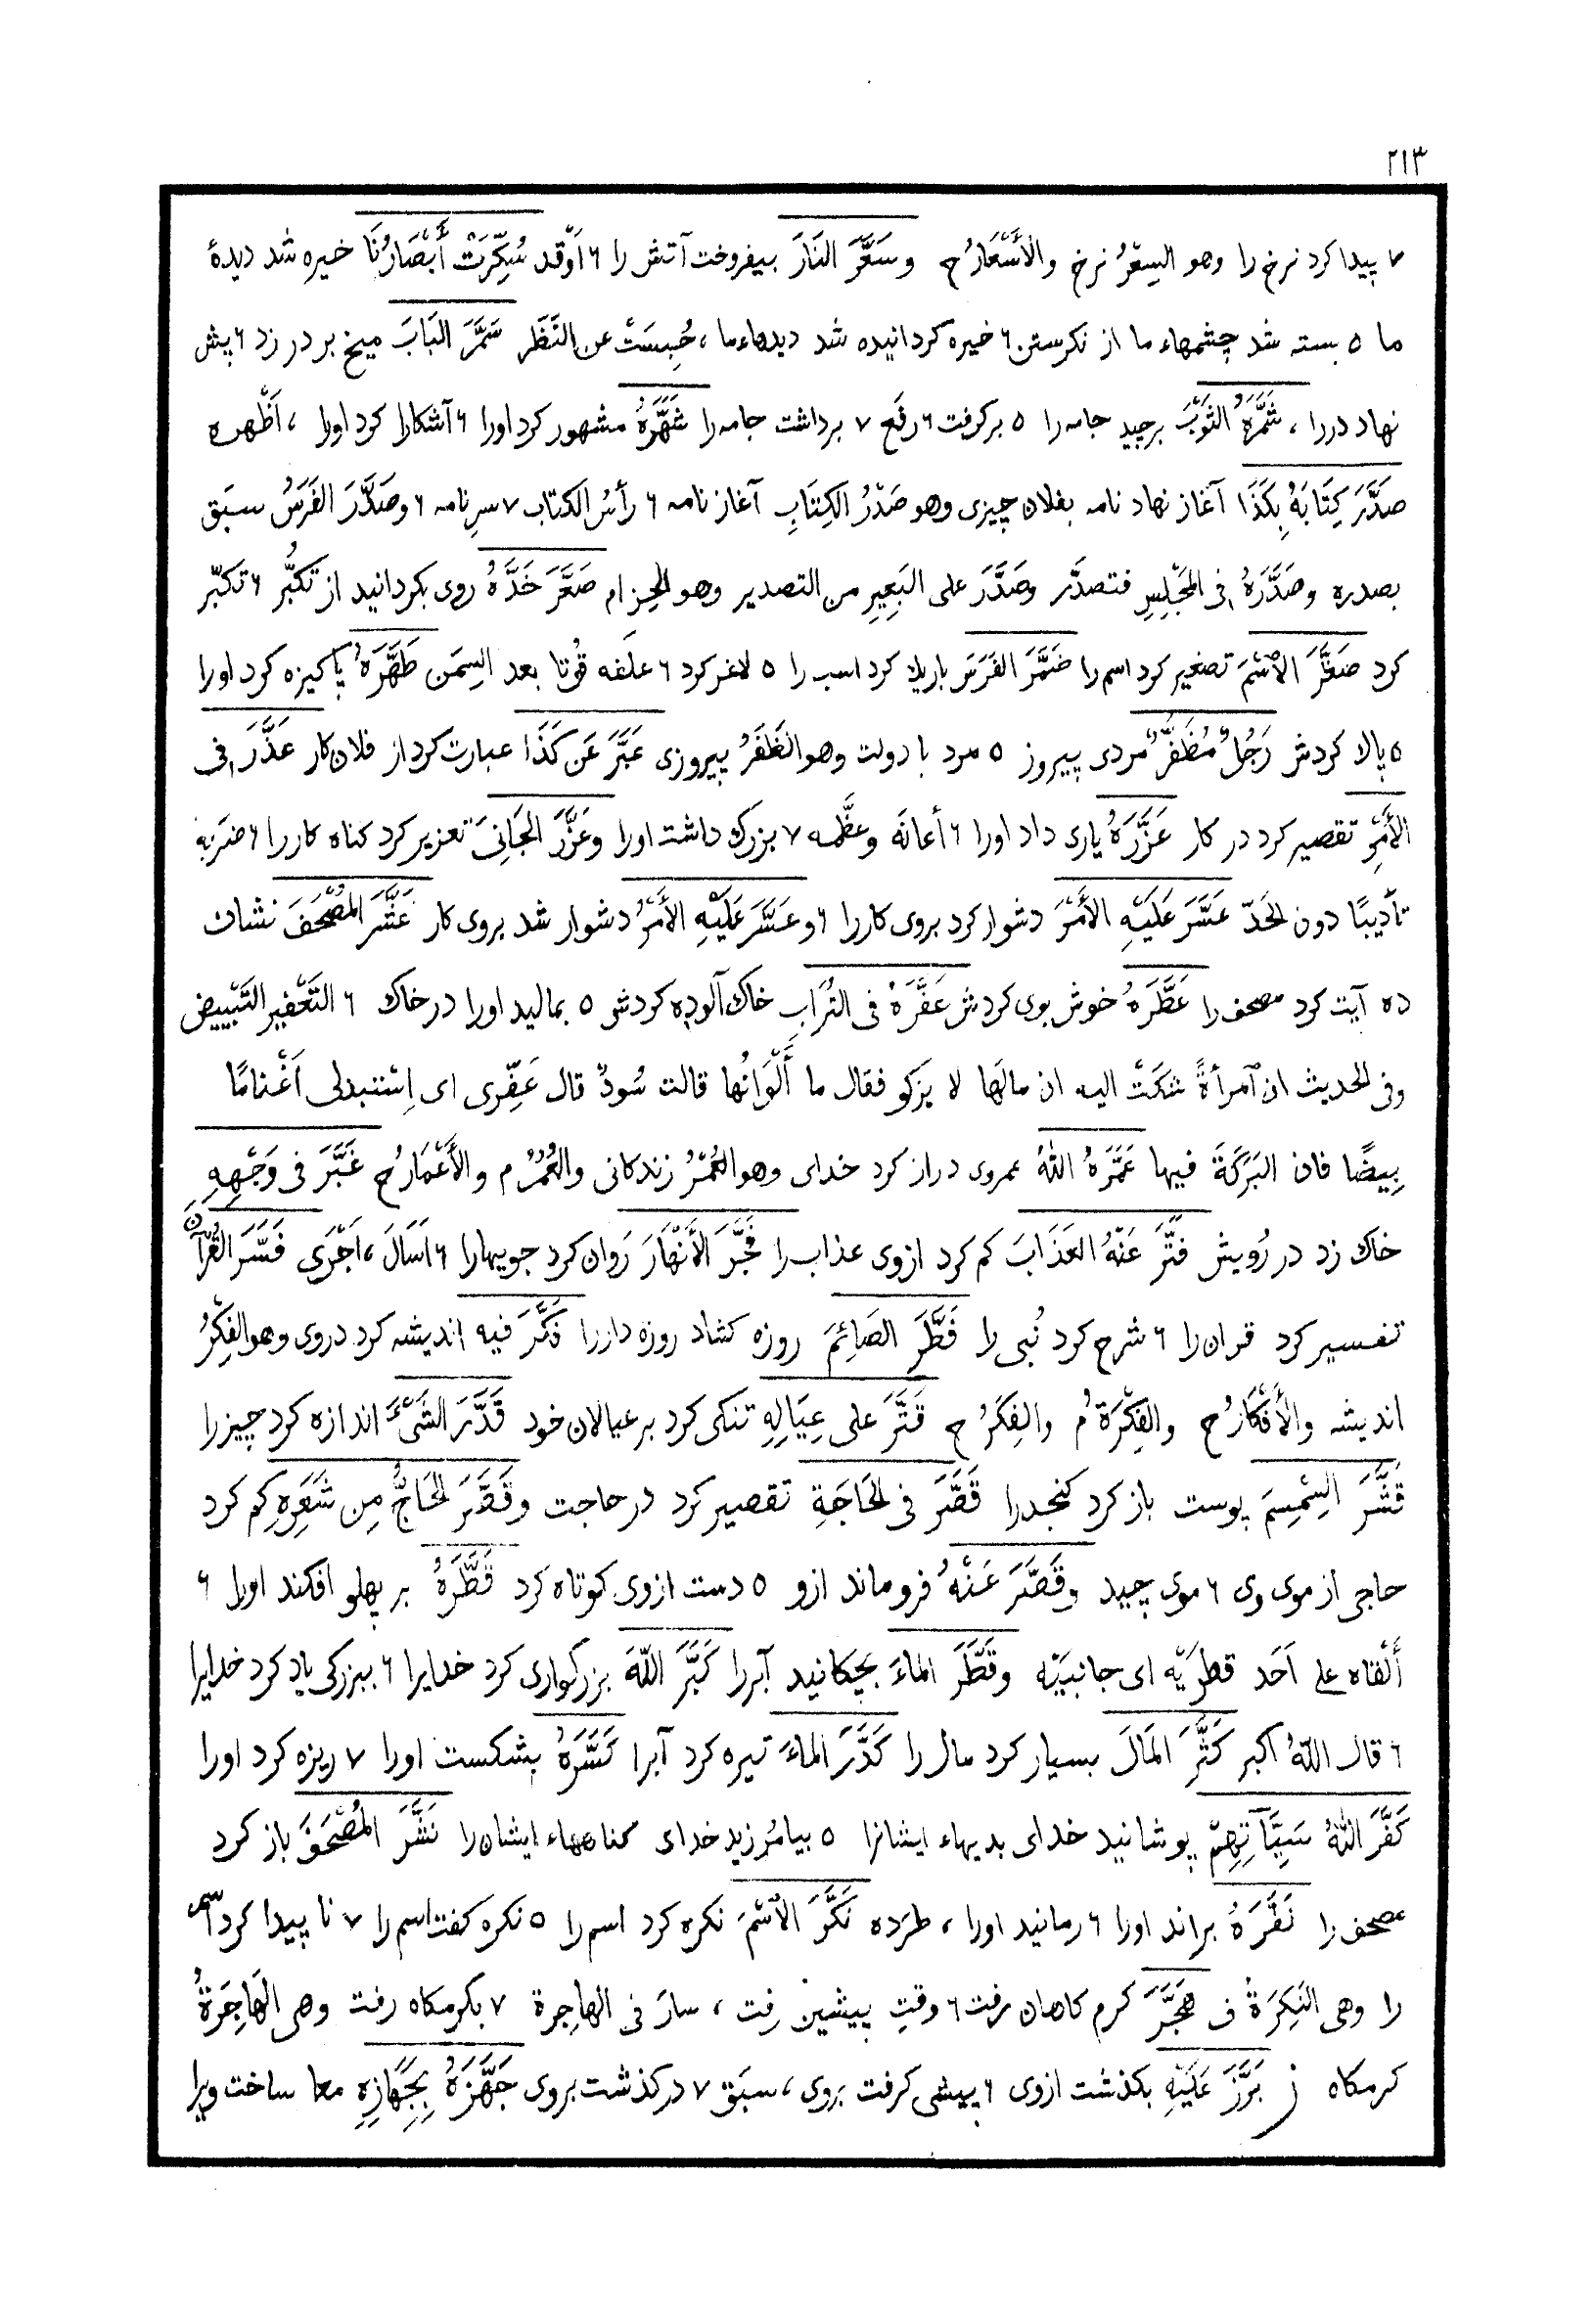 ٢١٣
٧ پیدا کرد نرخ را وهو السِعْرُ نرخ والأَسْعَارُ ج وسَعَّرَ النَارَ بیفروخت آتش را ٦ اَوْقد سُکِّرَتْ أَبْصَارُنَا خیره شد دیدهٔ
ما ٥ بسته شد چشمهاء ما از نکرستن ٦ خیره کردانیده شد دیدهاء ما ، حُبِسَتْ عن النَظَر سَمَّرَ البَابَ میخ بر در زد ٦ پش
نهاد در را ، شَمَّرَ الثَوْبَ برچید جامه را ٥ برکرفت ٦ رفَع ٧ برداشت جامه را شَهَّرَهُ مشهور کرد اورا ٦ آشکارا کرد اورا ، اَظْهره
صَدَّرَ کِتَابَهُ بِکَذَا آغاز نهاد نامه بفلان چیزی وهو صَدْرُ الکِتَابِ آغاز نامه ٦ رأسُ الکتاب ٧ سرِ نامه ٦ وصَدَّرَ الفَرَسُ سبَق
بصدره وصَدَّرَهُ فی المَجْلِسِ فتصدَّر وصَدَّرَ علی البَعِیرِ من التصدیر وهو الحِزام صَعَّرَ خَدَّهُ روی بکردانید از تکبُّر ٦ تکبّر
کرد صَغَّرَ الاْسْمَ تصغیر کرد اسم را ضَمَّرَ الفَرَسَ باریك کرد اسب را ٥ لاغر کرد ٦ علَفه قُوتا بعد السِمَن طَهَّرَهُ پاکیزه کرد اورا
٥ پالا کردش رَجُلٌ مُظَفَّرٌ مردی پیروز ٥ مرد با دولت وهو الظَفَرُ پیروزی عَبَّرَ عَن کَذَا عبارت کرد از فلان کار عَذَّرَ فی
الأَمْرِ تقصیر کرد در کار عَزَّرَهُ یاری داد اورا ٦ أعانَه وعظَّمه ٧ بزرك داشت اورا وعَزَّرَ الجَانِیَ تعزیر کرد کناه کار را ٦ ضرَبَه
تأدیبًا دون الحَدّ عَسَّرَ عَلَیْهِ الأَمْرَ دشوار کرد بروی کار را ٦ وعَسَّرَ عَلَیْهِ الأَمْرُ دشوار شد بروی کار عَشَّرَ المُصْحَفَ نشان
ده آیت کرد مصحف را عَطَّرَهُ خوش بوی کردش عَفَّرَهُ فی التُرَابِ خاك آلوده کردش ٥ بمالید اورا در خاك ٦ التَعْفیر التَبْییض
وفی الحدیث ان ٱمرأةً شکَتْ الیه ان مالَها لا یزکو فقال ما أَلْوَانُها قالت سُودٌ قال عَفِّری ای اِسْتبدلی اَغْنامًا
بِیضًا فان البَرَکَةَ فیها عَمَّرَهُ اللهُ عمروی دراز کرد خدای وهو العُمْرُ زندکانی والعُمُرُ م والأَعْمَارُ ج غَبَّرَ فی وَجْهِهِ
خاك زد در رُویش فَتَّرَ عَنْهُ العَذَابَ کم کرد ازوی عذاب را فَجَّرَ الأَنْهَارَ رَوان کرد جویهارا ٦ اَسَالَ ، اَجْرَی فَسَّرَ القُرْآنَ
تفسیر کرد قران را ٦ شرح کرد نُبی را فَطَّرَ الصَائِمَ روزه کشاد روزه دار را فَکَّرَ فیه اندیشه کرد دروی وهو الفِکْرُ
اندیشه والأَفْکَارُ ج والفِکْرَةُ م والفِکَرُ ج قَتَّرَ علی عِیَالِهِ تنکی کرد بر عیالان خود قَدَّرَ الشَیْءَ اندازه کرد چیز را
قَشَّرَ السِمْسِمَ پوست باز کرد کنجدرا قَصَّرَ فی الحَاجَةِ تقصیر کرد در حاجت وقَصَّرَ الحَاجُّ مِن شَعَرِهِ کم کرد
حاجی از موی وی ٦ موی چید وقَصَّرَ عَنْهُ فرو ماند ازو ٥ دست ازوی کوتاه کرد قَطَّرَهُ بر پهلو افکند اورا ٦
أَلقاه علی اَحَد قطرَیْه ای جانبیْه وقَطَّرَ المَاءَ بچکانید آبرا کَبَّرَ اللّٰهَ بزرکواری کرد خدایرا ٦ ببزرکی یاد کرد خدایرا
٦ قال اللّٰهُ اکبر کَثَّرَ المَالَ بسیار کرد مال را کَدَّرَ المَاءَ تیره کرد آبرا کَسَّرَهُ بشکست اورا ٧ ریزه کرد اورا
کَفَّرَ اللهُ سَیِّآتِهِمْ پوشانید خدای بدیهاء ایشانرا ٥ بیامُرزید خدای کناهاء ایشان را نَشَّرَ المُصْحَفَ باز کرد
مصحف را نَفَّرَهُ براند اورا ٦ رمانید اورا ، طرَده نَکَّرَ الاْسْمَ نکره کرد اسم را ٥ نکره کفت اسم را ٧ نا پیدا کرد اسم
را وهی النَکِرَةُ ف هَجَّرَ کرم کاهان رفت ٦ وقتِ پیشین رفت ، سارَ فی الهاجِرة ٧ بکرمکاه رفت وهی الهَاجِرَةُ
کرمکاه ز بَرَّزَ عَلَیْهِ بکذشت ازوی ٦ پیشی کرفت بروی ، سبَق ٧ درکذشت بروی جَهَّزَهُ بِجَهَازِهِ معا ساخت ویرا